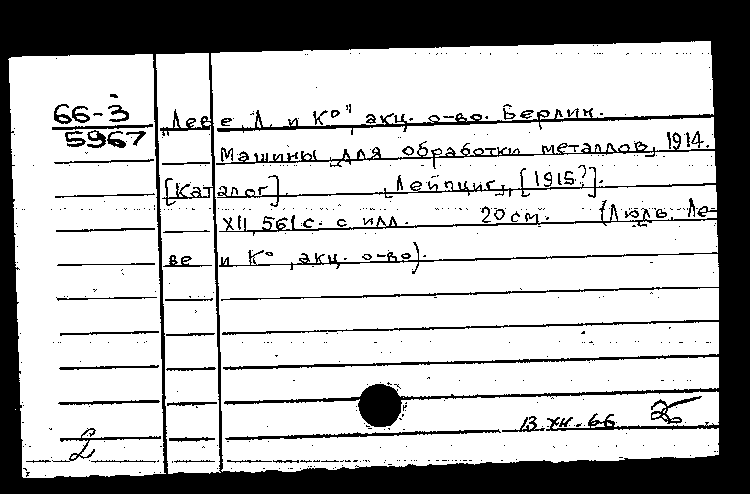 66-3
5967
„Леве, Л. и К°", акц. о-во. Берлин.
Машины для обработки металлов, 1914.
[Каталог]. Лейпциг, [1915?].
XII, 561 с. с илл. 20 см. (Людв. Ле-
ве и К°, акц. о-во).
13.XII.66
2